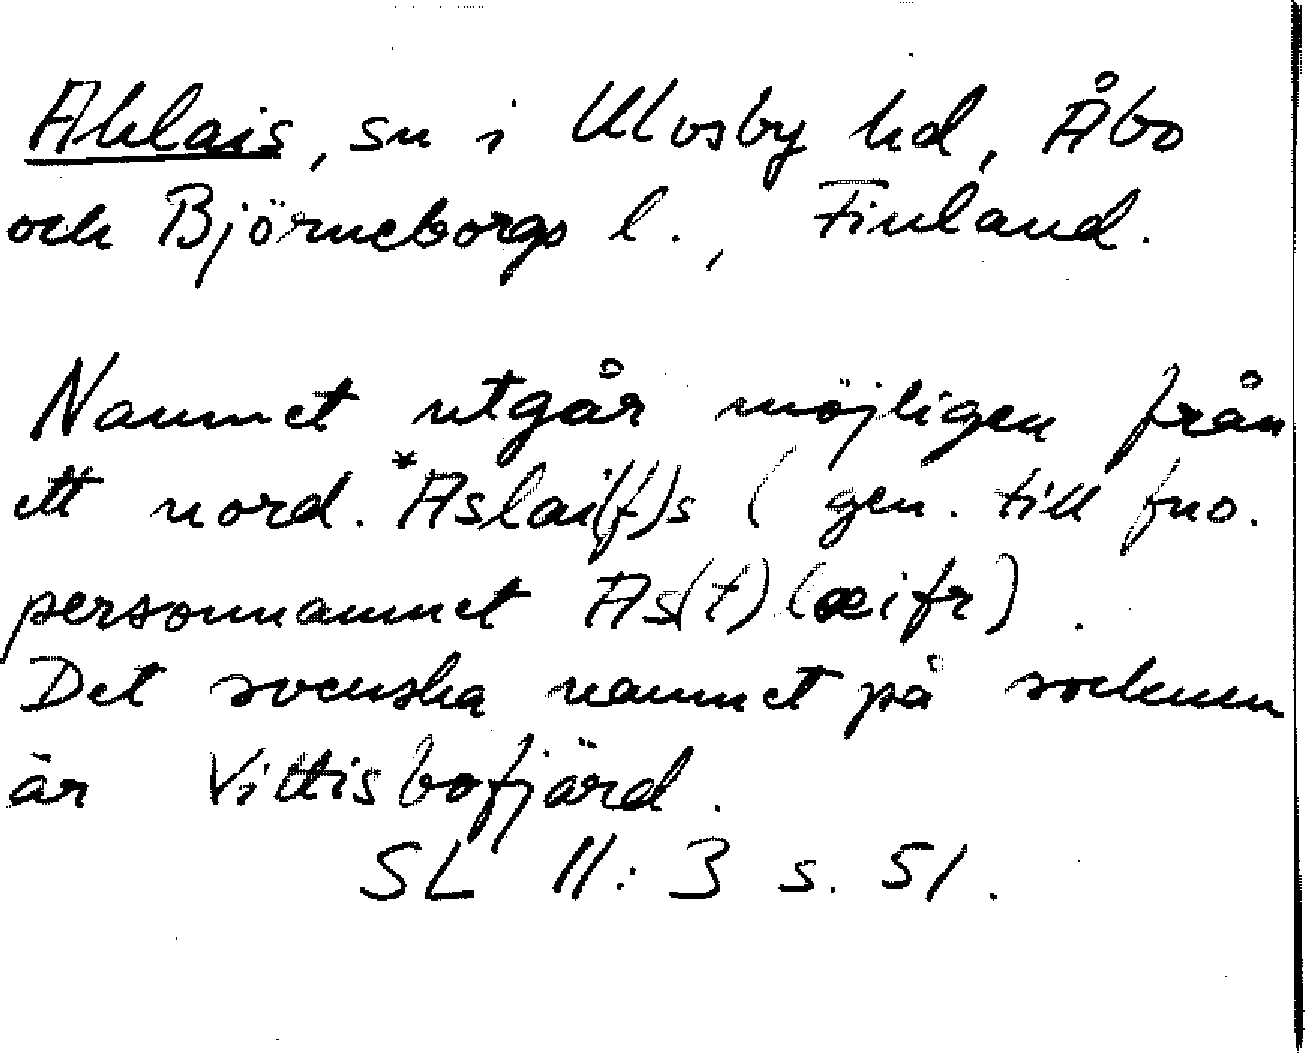 Ahlais, sn i Ulvsby hd, Åbo
och Björneborgs l., Finland.
Namnet utgår möjligen från
ett nord. *Aslai(f)s (gen. till fno.
personnamnet As(t)(æifr).
Det svenska namnet på socknen
är Vittisbofjärd.
SL II: 3 s. 51.